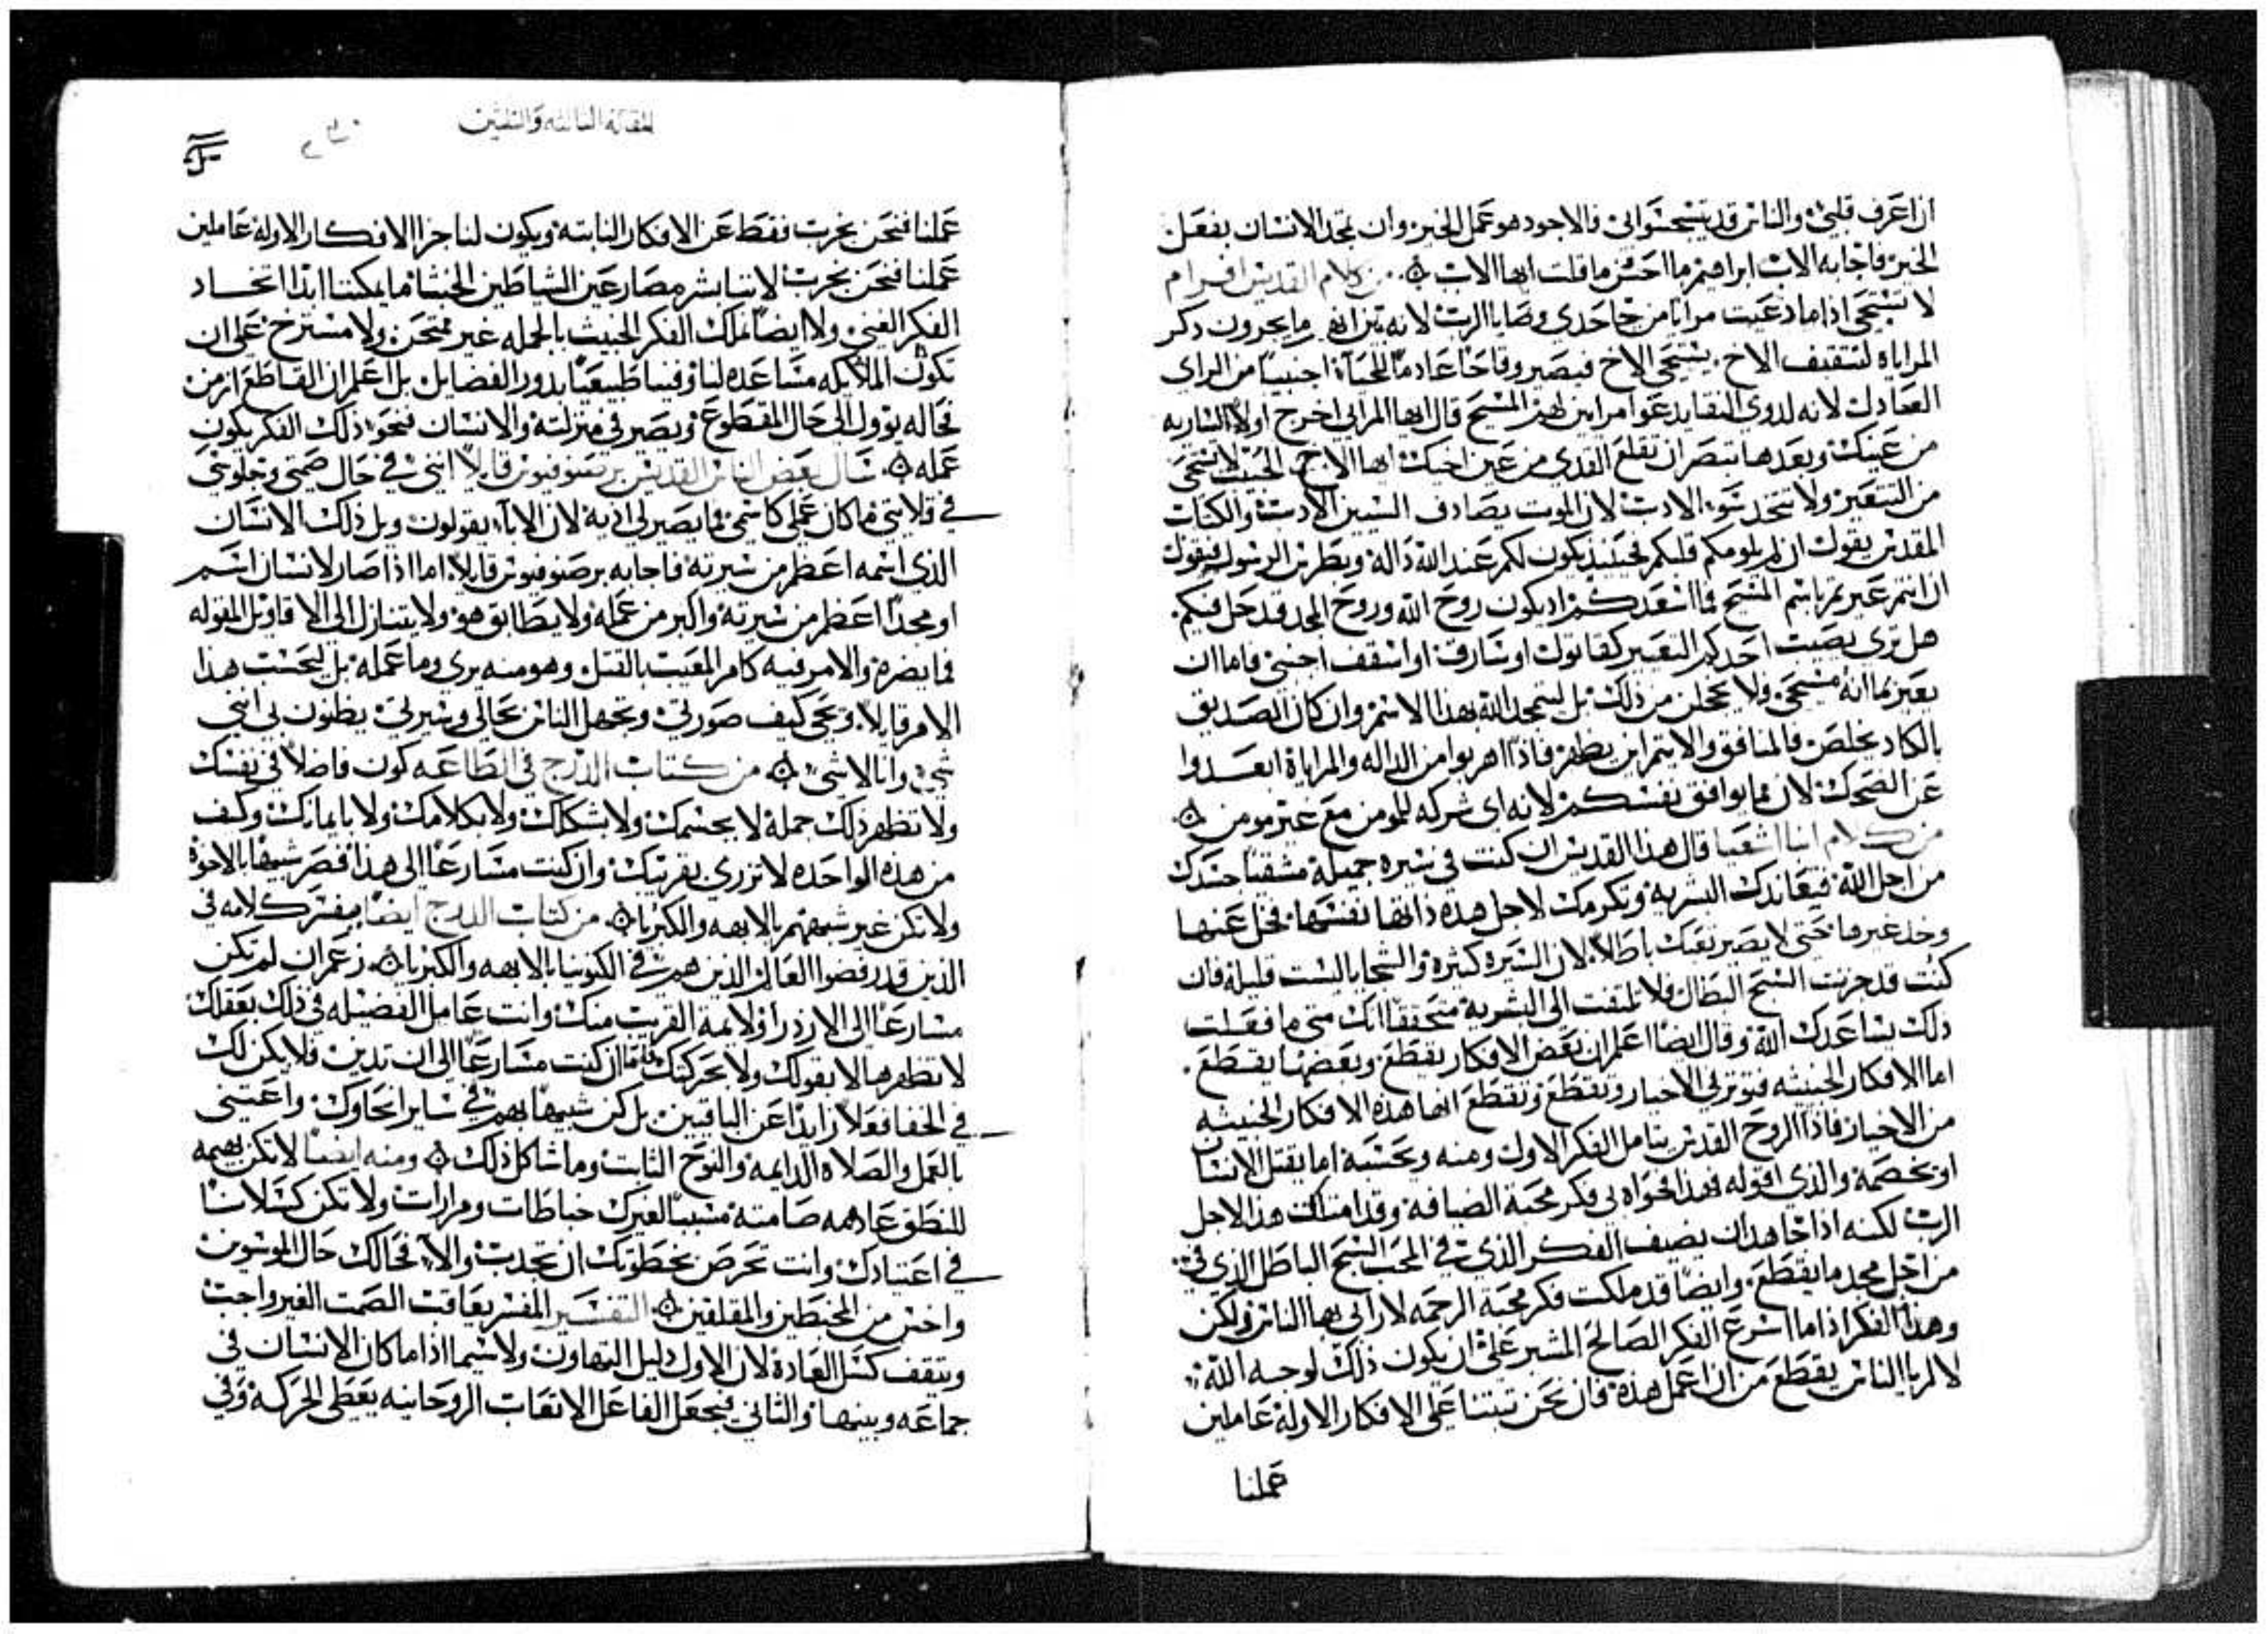 ان اعرف قلبي والناس قد يستحسنوا لي فالاجود هو عمل الخير وان تجد الانسان بفعل
الخير فاجابه الاب ابراهيم ما احسن ما قلت ايها الاب من كلام القديس افرام
لا تستحي اذا ما دعيت مرايا من جاحدي وصايا الرب لانه
المراياه لتثقيف الاخ يستحي الاخ فيصير وقاحا عادما للحياة اجنبيا من الراي
العادل لانه لذوي النقايد عوا مرايين لهم المسيح قال ايها المرائي اخرج اولا الساريه
من عينك وبعدها تبصر ان تقلع القدى من عين اخيك ايها الاخ الحبيب لا تستحي
من التعيير ولا تتخذ شو الادب لان الموت يصادف السيين الادب والكتاب
المقدس يقول ان لم يلومكم قلبكم فحينيذ يكون لكم عند الله دالة وبطرس الرسول فيقول
ان انتم عيرتم باسم المسيح فما اسعدكم اذ يكون روح الله وروح المجد قد حل فيكم
هل ترى يصيب احدكم التعيير كقاتول او سارق او اسقف اجنبي فاما ان
يعير بما انه مسيحي ولا يخجلن من ذلك بل ليمجد الله بهذا الاسم وان كان الصديق
بالكاد يخلص فالمنافق والاثيم اين يظهر فاذا اهربوا من الداله والمراياة ابعدوا
عن الضحك لان ما يوافق نفسكم لانه اي شركه للمومن مع غير مومن
من كلام انبا اشعيا قال هذا القديس ان كنت في سيره جميلة مشقيا جسدك
من اجل الله فيعاندك البشرية وتكرمك لاجل هذه ذاتها نفسها فخل عنها
وخذ غيرها حتى لا يصير تعبك باطلا لان السيرة كثيرة والسجايا ليست قليلة فان
كنت قد حزنت السبح البطال فلا تلتفت الى البشرية متحققا انك متى ما فعلت
ذلك يساعدك الله وقال ايضا اعلم ان بعض الافكار يقطع وبعضها يقطع
اما الافكار الخبيثه فتوثر في الاخيار وتقطع وتقطع انها هذه الافكار الخبيثه
من الاخيار فاذا الروح القدس يتامل الفكر الاول ومنه ويحسبه اما يقتل الانسان
او يخصمه والذي اقوله فهذا فحواه لي فكر محبة الضيافه وقد امتلكت هذا لاجل
الرب لكنه اذا جاهد ان يضيف الفكر الذي في المحب السبح الباطل الذي في
من اجل مجد ما يقطع وايضا قد ملكت فكر محبة الرحمه لاراي بها الناس ولكن
وهذا الفكر اذا ما اسرع الفكر الصالح المشير علي ان يكون ذلك لوجه الله
لا لريا الناس يقطع من ان اعمل هذه فان نحن تبتنا على الافكار الاولة عاملين
عملنا
المقالة الثالثه والثلثين
عملنا فنحن نجرب فقط عن الافكار الثابتة ويكون لنا جزا الافكار الاولة عاملين
عملنا فنحن نجرب لاننا بشر مصارعين الشياطين الخبثا ما يمكننا ابدا اتخاد
الفكر الغني ولا ايضا نملك الفكر الخبيث بالجمله غير ممتحن ولا مسترخ على ان
تكون الملايكه مساعده لنا وفينا طبيعيا بدور الفضايل بل اعلم ان القاطع ازمن
فحاله يوول الى حال المقطوع ويصير في منزلته والانسان فنحو ذلك الفكر يكون
عمله سال بعض الناس القديس برصنوفيوس قايلا انني في حال صمتي وجلوسي
في قلايتي ما كان عملي كاسمي فما يصير لي اذيه لان الابا يقولون ويل ذلك الانسان
الذي اسمه اعظم من سيرته فاجابه برصنوفيوس قايلا اما اذا صار لانسان اسم
او مجدا اعظم من سيرته واكبر من عمله ولا يطابق هو ولا يتنازل الى الاقاويل المقوله
فما يضره والامر فيه كامر المعيب بالقتل وهو منه بري وما عمله بل ليحسب هذا
الامر قايلا ويحي كيف صورتي وتجهل الناس بحالي وسيرتي يظنون بي انني
شي وانا لا شي من كتاب الدرج في الطاعه كون فاضلا في نفسك
ولا تظهر ذلك جملة لا بجسمك ولا بشكلك ولا بكلامك ولا بايمايك وكف
من هذه الواحده لا تزري بقريبك وان كنت مسارعا الى هذا فصر شبيها بالاخوة
ولا تكن غير شبيههم بالابهه والكبريا من كتاب الدرج ايضا مفسر كلامه في
الذين قد رفضوا العالم الذين هم في الكونبيا بالابهه والكبريا زعم ان لم تكن
مسارعا الى الازدرا ولايمة القريب منك وانت عامل الفضيله في ذلك بعقلك
لا تظهرها لا بقولك ولا بحركتك فان كنت مسارعا الى ان تدين فلا يكن لك
في الخفا فعلا زايدا عن الباقيين بل كن شبيها بهم في ساير انحاوك واعتني
بالعمل والصلاه الدايمه والنوح الثابت وما شاكل ذلك ومنه ايضا لا تكن بهيمه
للنطق عادمه صامته مسببا لغيرك خباطات ومرارات ولا تكن كسلانا
في اعتيادك وانت تحرص بخطوتك ان تجدب والا فحالك حال الموسوين
واخس من المخبطين والمقلقين التفسير المفسر يعاقب الصمت الغير واجب
ويثقف كسل العادة لان الاول دليل التهاون ولا سيما اذا ما كان الانسان في
جماعه وبينها والثاني فيجعل الفاعل الاتعاب الروحانيه يعطى الحركة وفي